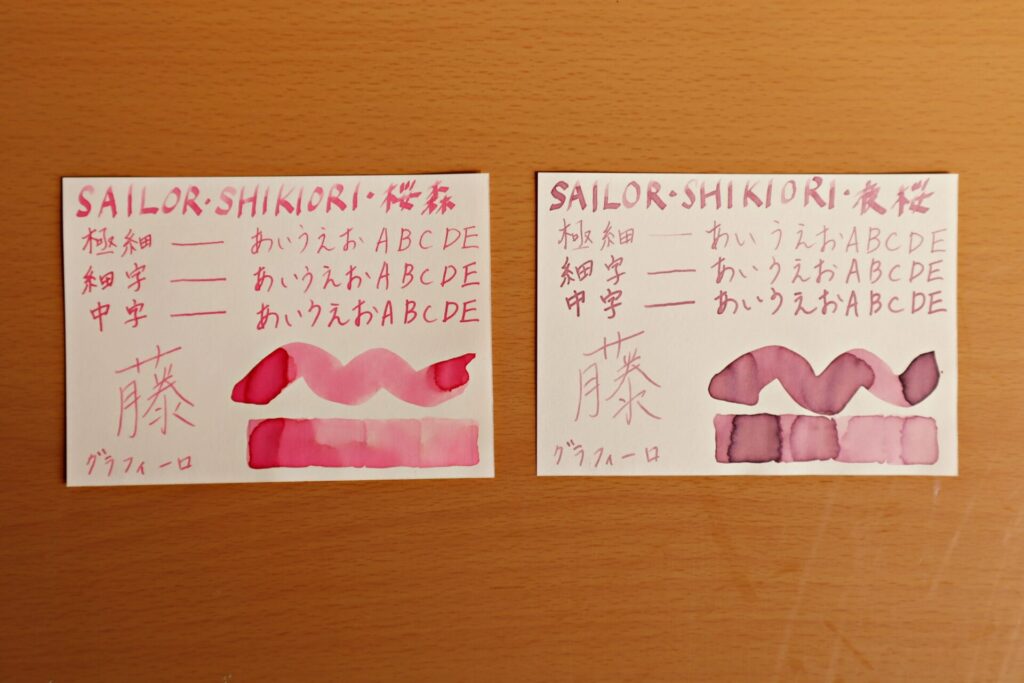 SAILOR・SHIKIORI・桜森
極細 ── あいうえお ABCDE
細字 ── あいうえお ABCDE
中字 ── あいうえお ABCDE
藤
グラフィーロ
SAILOR・SHIKIORI・夜桜
極細 ── あいうえお ABCDE
細字 ── あいうえお ABCDE
中字 ── あいうえお ABCDE
藤
グラフィーロ